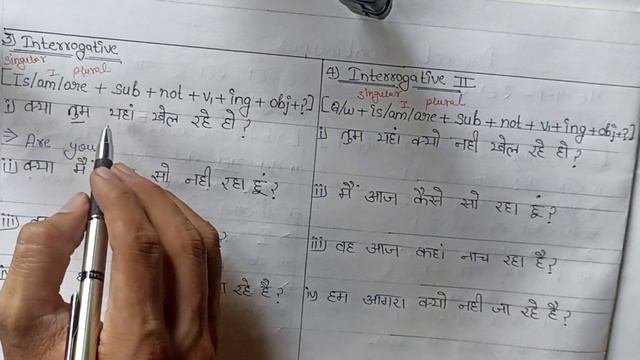 3) Interrogative
singular I plural
[Is/am/are + sub + not + v₁ + ing + obj + ?]
i) क्या तुम यहां खेल रहे हो?
⇒ Are you
ii) क्या मैं सो नही रहा हूं?
iii) ?
रहे है?
4) Interrogative II
singular I plural
[Q/w + is/am/are + sub + not + v₁ + ing + obj + ?]
i) तुम यहां क्यो नही खेल रहे हो?
ii) मैं आज कैसे सो रहा हूं?
iii) वह आज कहां नाच रहा है?
iv) हम आगरा क्यो नही जा रहे है?